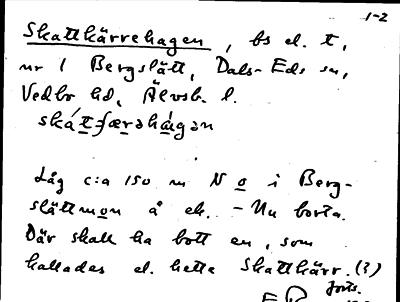 1-2
Skattkärrehagen, bs el. t,
nr 1 Bergslätt, Dals-Eds sn,
Vedbo hd, Älvsb. l.
Låg c:a 150 m N o i Berg-
slättmon å ek. - Nu borta.
Där skall ha bott en, som
kallades el. hette Skattkärr. (?)
forts.